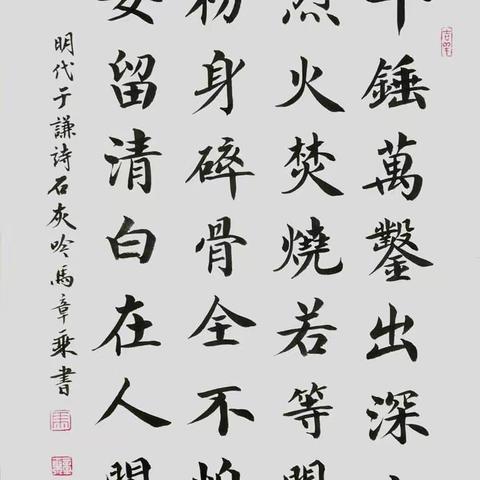 千錘萬鑿出深
烈火焚燒若等閒
粉身碎骨全不怕
要留清白在人間
明代于謙詩石灰吟馬章乘書